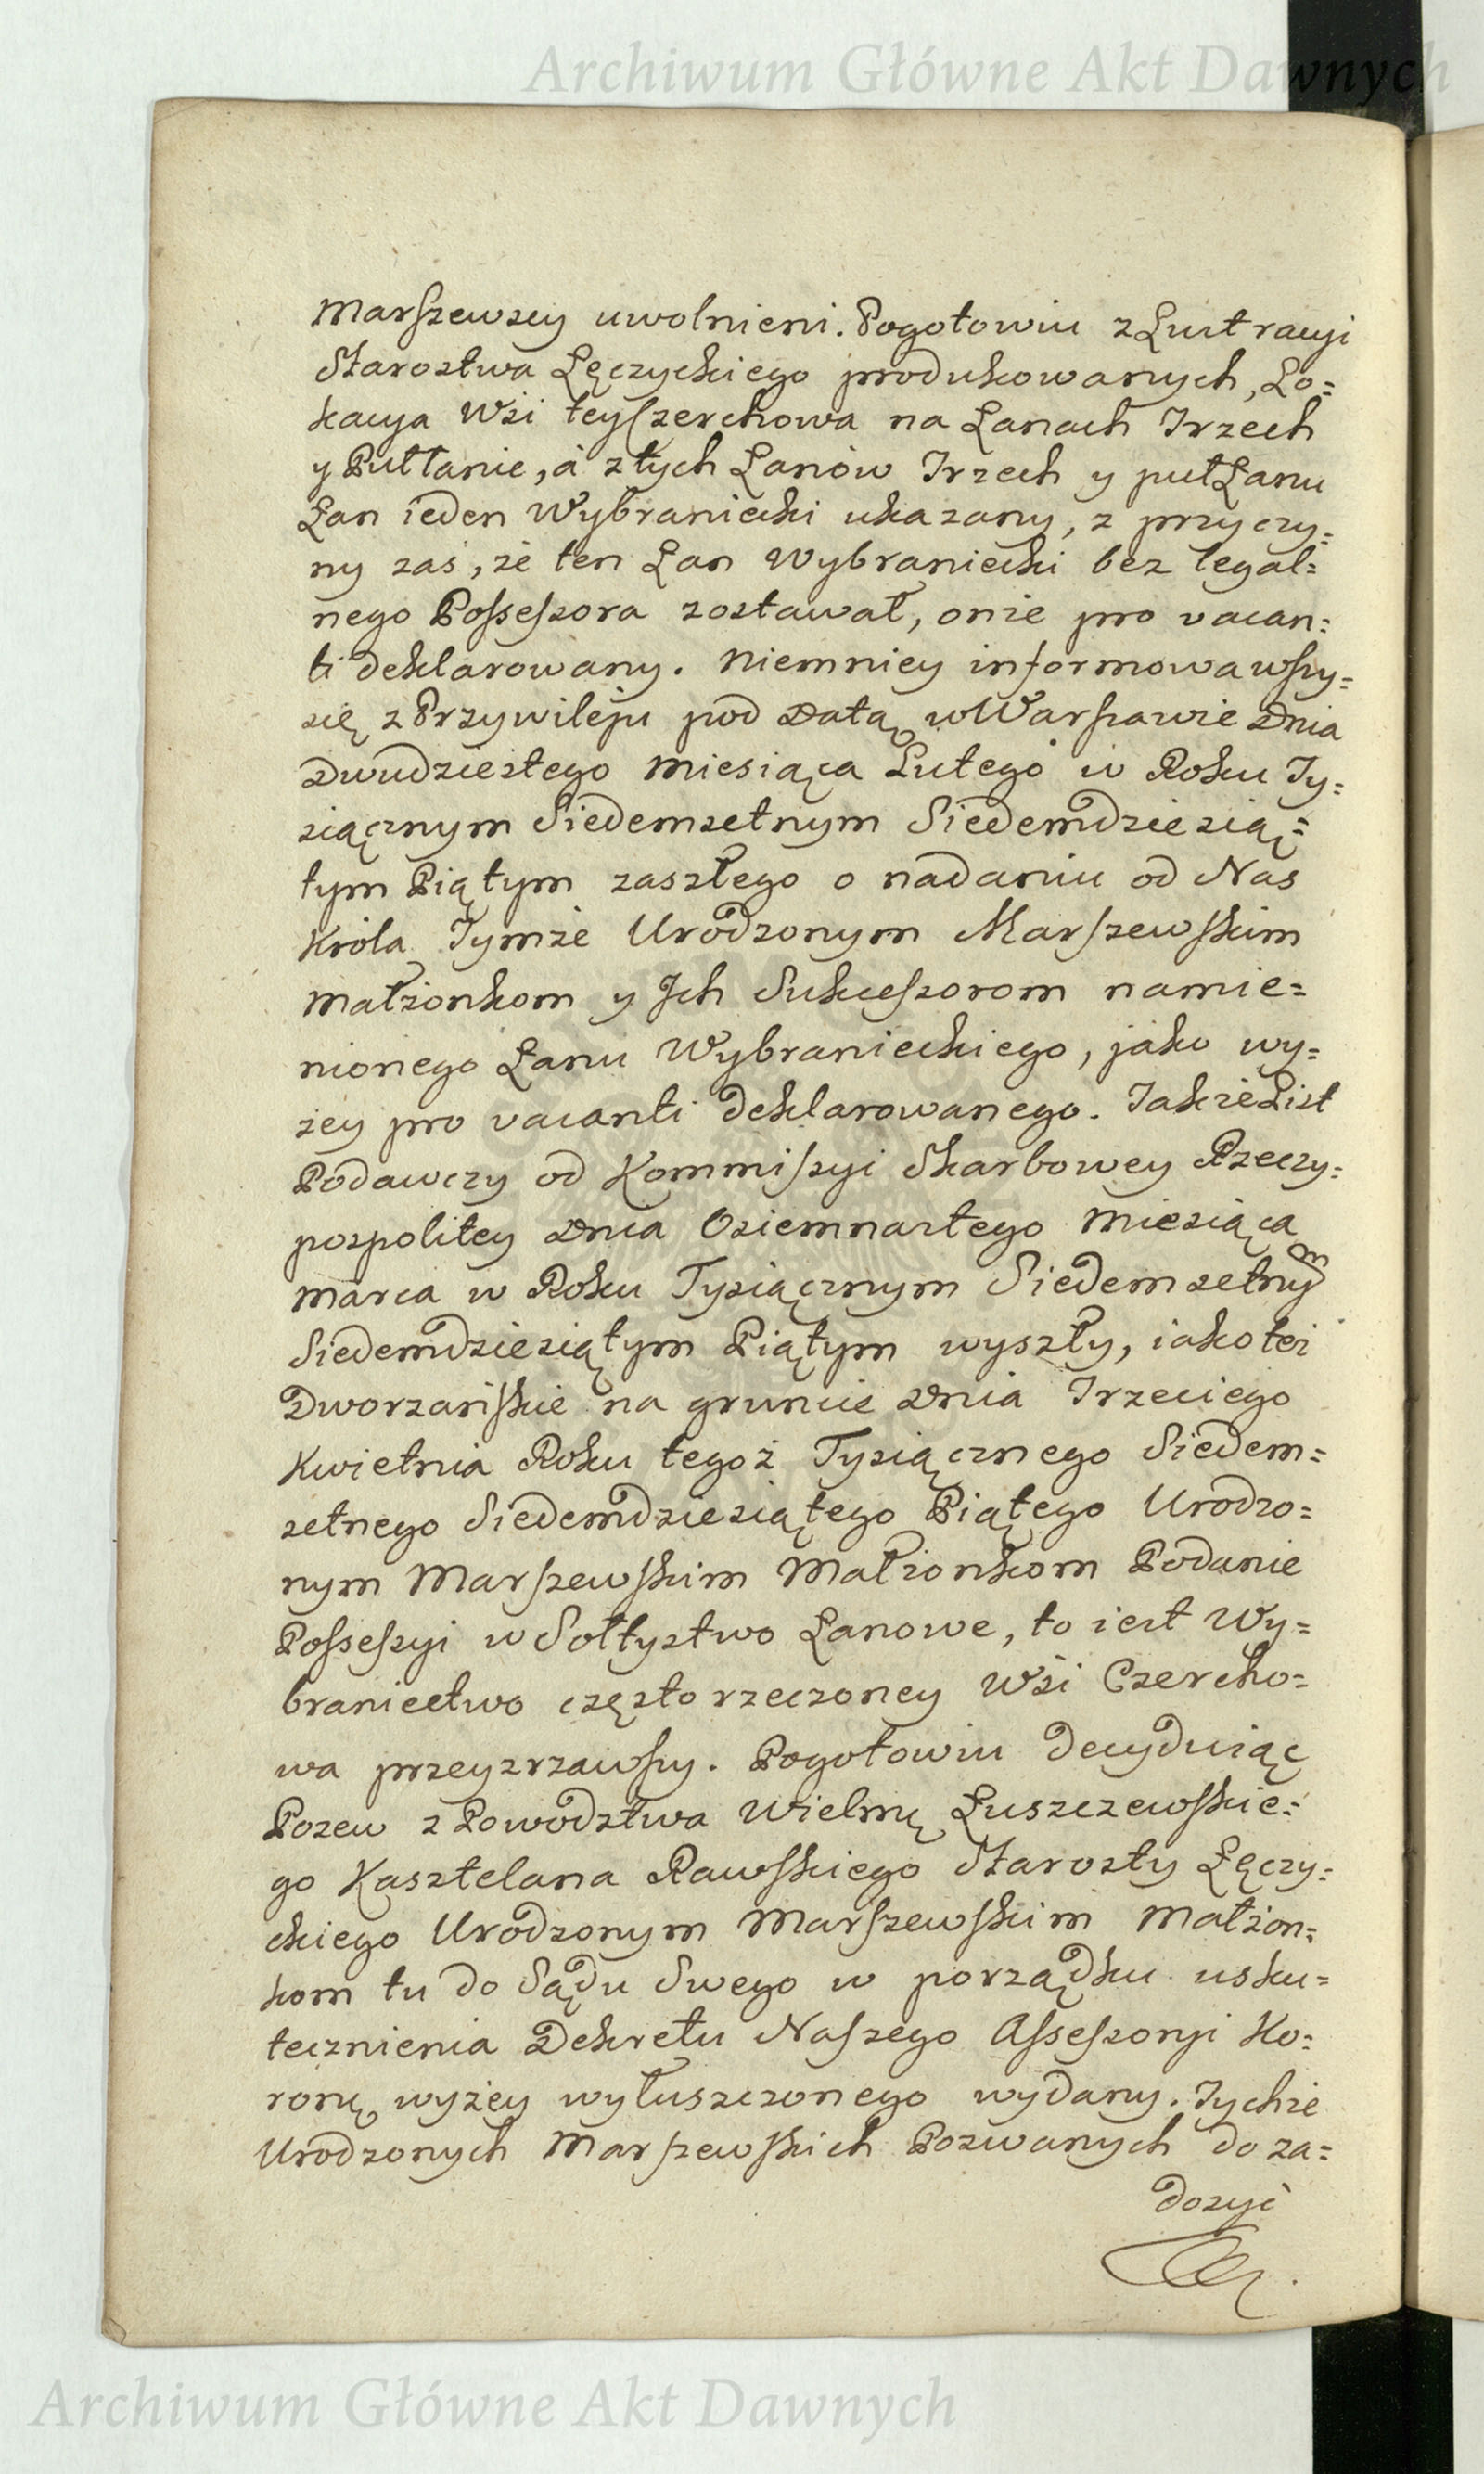 Archiwum Główne Akt Dawnych
Marszewscy uwolnieni. Pogotowiu z Lustracyi
Starostwa Łęczyckiego produkowanych, Lo=
kacya Wśi teyszerchowa na Łanach Trzech
y Pułłanie, á z tych Łanów Trzech y puł Łanu
Łan ieden Wybraniecki ukazany, z przyczy=
ny zaś, że ten Łan Wybraniecki bez legal=
nego Possessora zostawał, onże pro vacan=
ti deklarowany. Niemniey informowawszy=
się z Przywileju pod Datą w Warszawie Dnia
Dwudziestego Miesiąca Lutego w Roku Ty=
siącznym Siedemsetnym Siedemdziesią=
tym Piątym zaszłego o nadaniu od Nas
Króla Tymże Urodzonym Marszewskim
Małżonkom y Ich Sukcessorom namie=
nionego Łanu Wybranieckiego, jako wy=
żey pro vacanti deklarowanego. Także List
Podawczy od Kommissyi Skarbowey Rzeczy=
pospolitey Dnia Osiemnastego Miesiąca
Marca w Roku Tysiącznym Siedemsetnym
Siedemdziesiątym Piątym wyszły, iako też
Dworzańskie na gruncie Dnia Trzeciego
Kwietnia Roku tegoż Tysiącznego Siedem=
setnego Siedemdziesiątego Piątego Urodzo=
nym Marszewskim Małżonkom Podanie
Possessyi w Sołtystwo Łanowe, to iest Wy=
braniectwo często rzeczoney Wśi Czercho=
wa przeyzrzawszy. Pogotowiu decyduiąc
Pozew z Powodztwa Wielmę Łuszczewskie=
go Kasztelana Rawskiego Starosty Łęczy=
ckiego Urodzonym Marszewskim Małżon=
kom tu do Sądu Swego w porządku usku=
tecznienia Dekretu Naszego Assessoryi Ko=
ronę wyżey wyłuszczonego wydany. Tychże
Urodzonych Marszewskich Pozwanych do za=
dosyć
Archiwum Główne Akt Dawnych